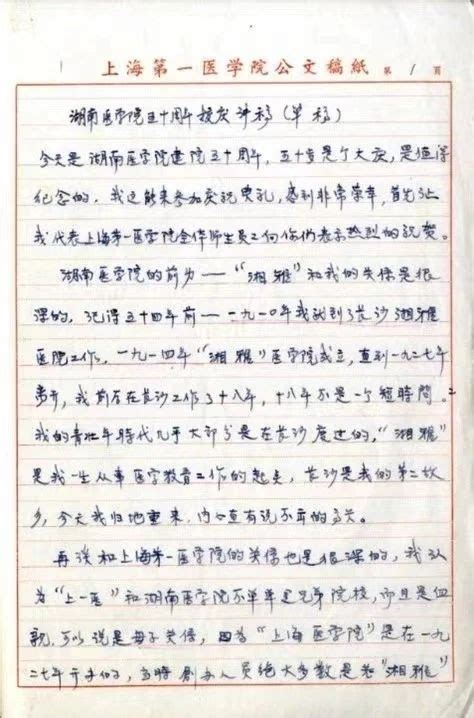 上海第一医学院公文稿紙 第 1 頁
湖南医学院五十周年校庆讲稿（草稿）
今天是湖南医学院建院五十周年，五十岁是个大庆，是值得
纪念的。我这能来参加庆祝典礼，感到非常荣幸，首先让
我代表上海第一医学院全体师生员工向你们表示热烈的祝贺。
湖南医学院的前身——“湘雅”和我的关系是很
深的，记得五十四年前——一九一〇年我就到了长沙湘雅
医院工作。一九一四年“湘雅”医学院成立，直到一九二七年
离开，我前后在长沙工作了十八年，十八年不是一个短時間。
我的青壮年時代几乎大部分是在长沙度过的，“湘雅”
是我一生从事医学教育工作的起点，长沙是我的第二故
乡，今天我旧地重来，内心直有说不尽的高兴。
再谈和上海第一医学院的关係也是很深的，我认
为“上一医”和湖南医学院不单单是兄弟院校，而且是血
親，可以说是母子关係，因为“上海医学院”是在一九
二七年开办的，当時創办人员绝大多数是老“湘雅”